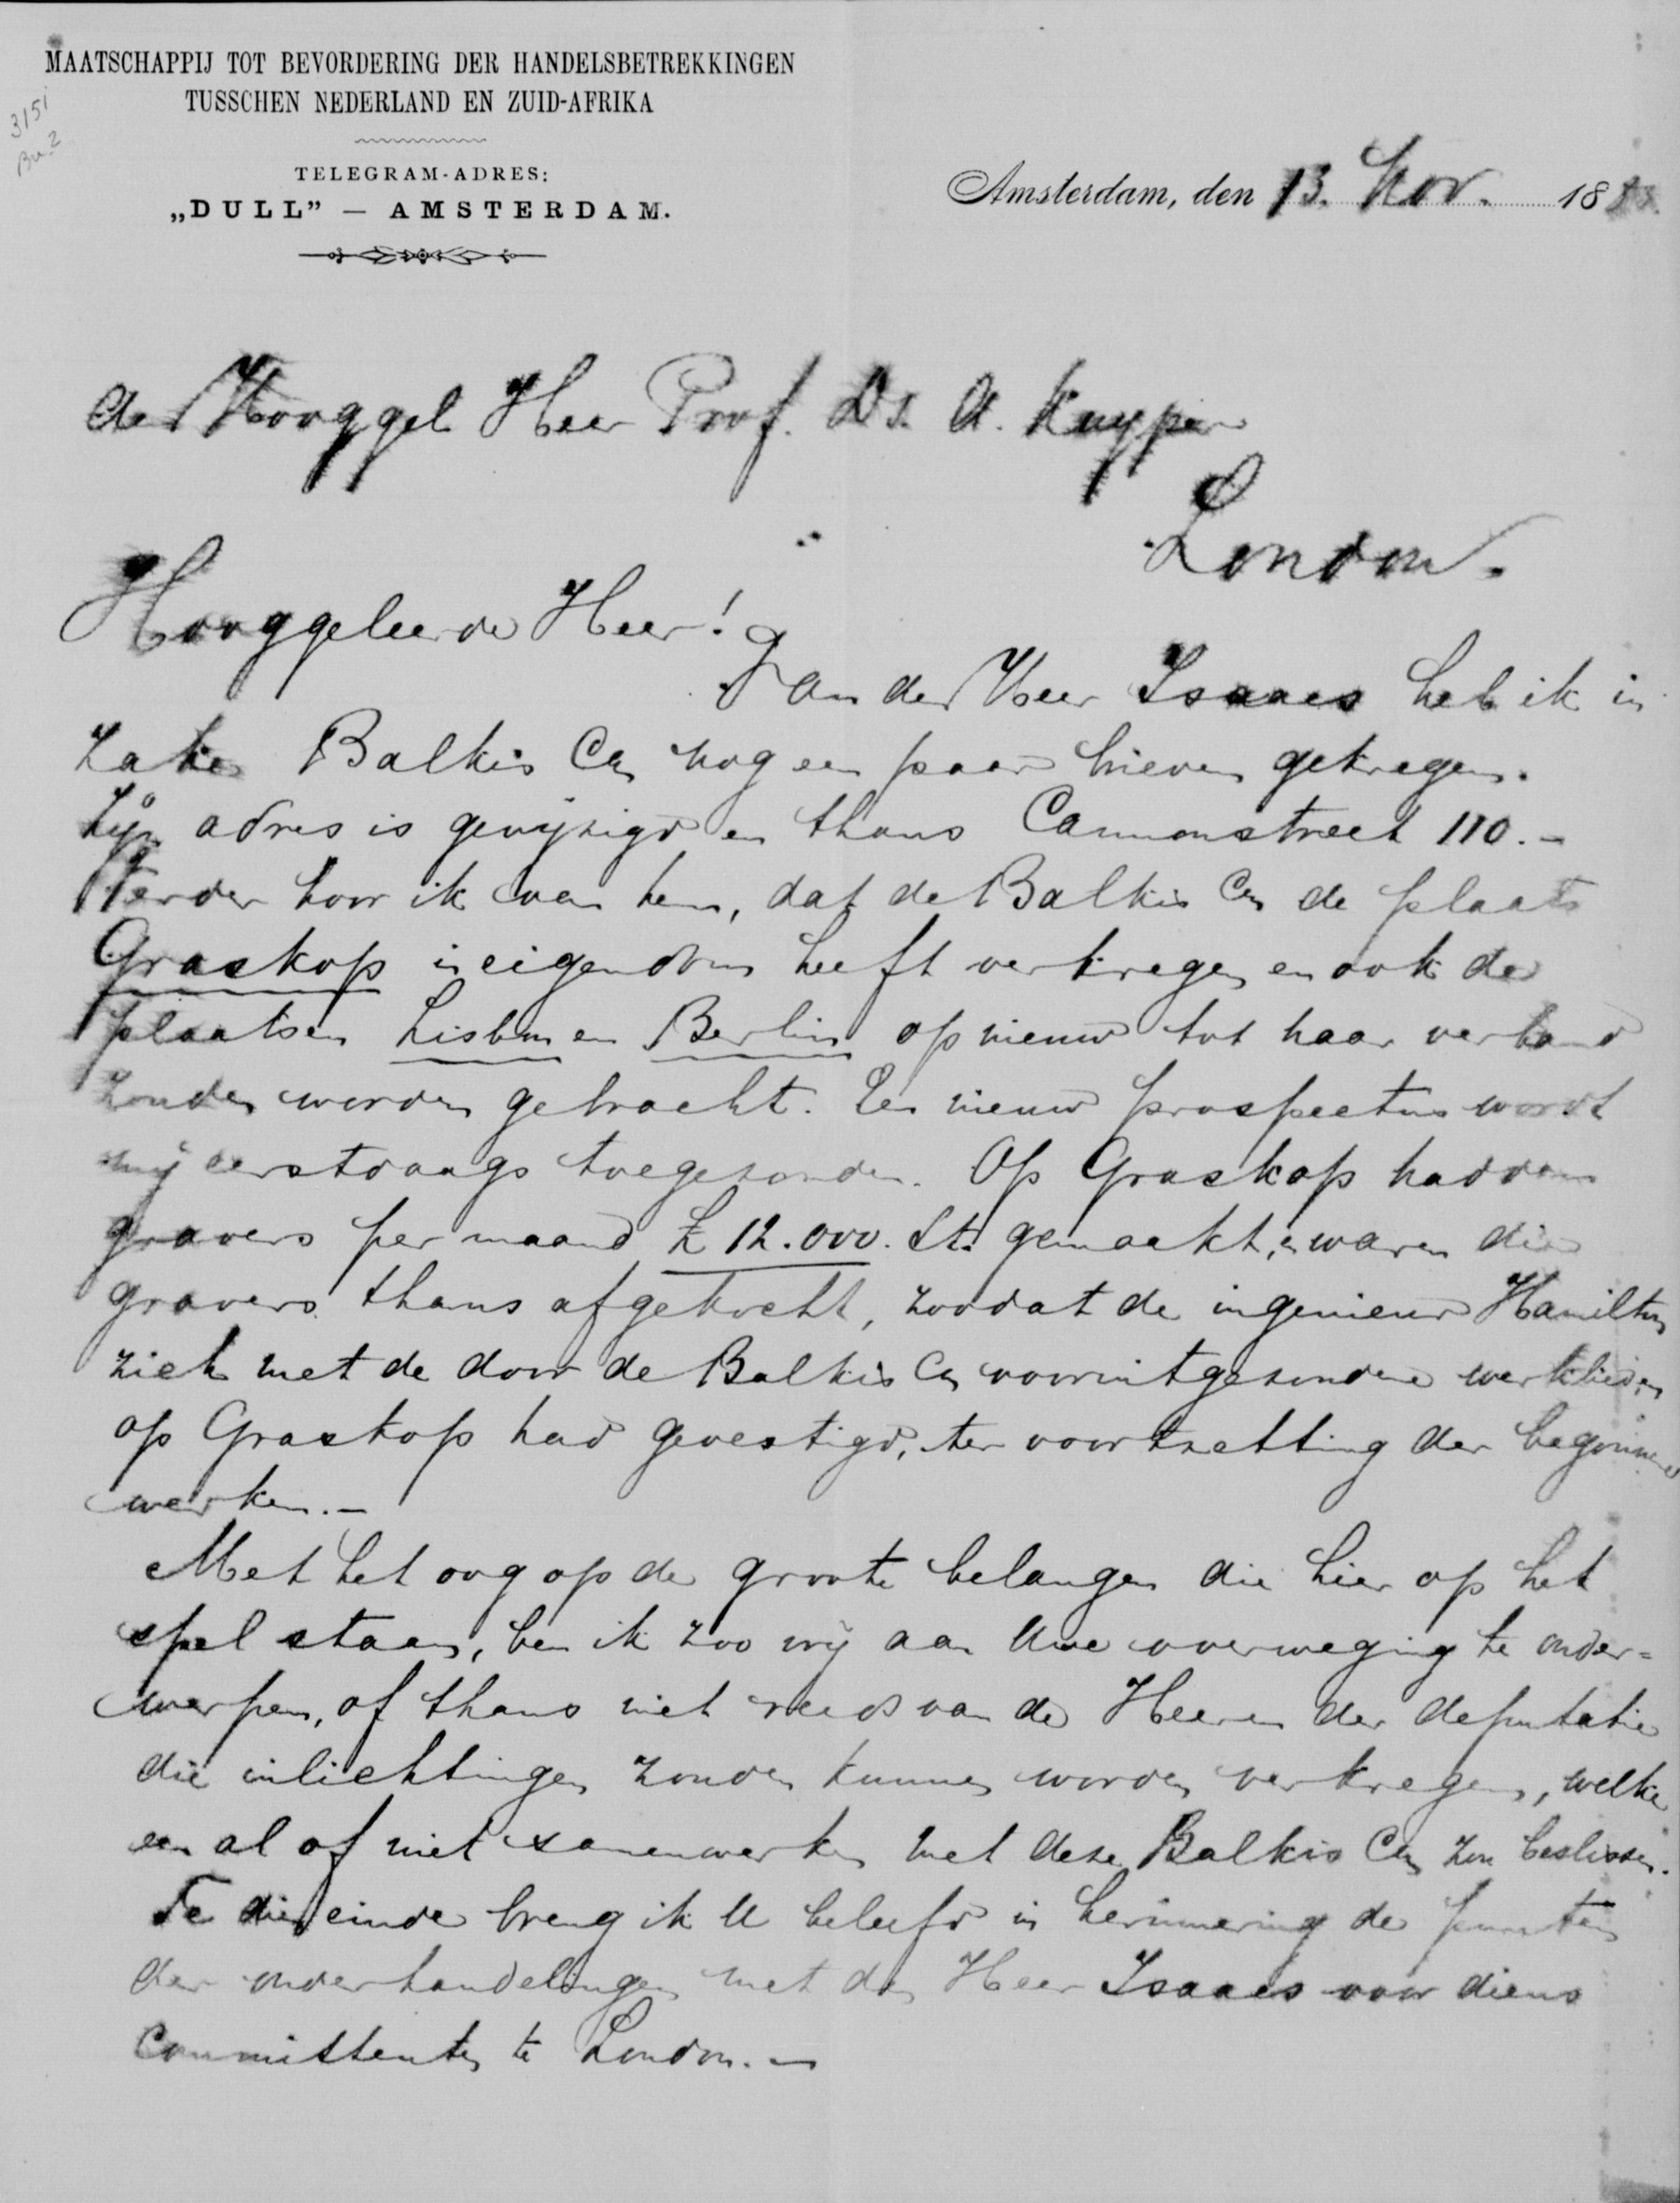 MAATSCHAPPIJ TOT BEVORDERING DER HANDELSBETREKKINGEN
TUSSCHEN NEDERLAND EN ZUID-AFRIKA
3151
Bu. 2
TELEGRAM-ADRES:
„DULL” — AMSTERDAM.
Amsterdam, den 13. Nov. 18
den Hooggel Heer Prof. Dr. A. Kuyper
London.
Hooggeleerde Heer!
Van den Heer Isaacs heb ik in
zake Balkis Cy nog een paar brieven gekregen.
Zijn adres is gewijzigd en thans Cannonstreet 110.-
Verder hoor ik van hem, dat de Balkis Cy de plaats
Graskop in eigendom heeft verkregen en ook de
plaatsen Lisbon en Berlin op nieuw tot haar verband
zouden worden gebracht. Een nieuw prospectus wordt
mij eerstdaags toegezonden. Op Graskop hadden
gravers per maand £ 12.000. St. gemaakt, en waren die
gravers thans afgekocht, zoodat de ingenieur Hamilton
zich met de door de Balkis Cy vooruitgezondene werklieden
op Graskop had gevestigd, ter voortzetting der begonnen
werken.-
Met het oog op de groote belangen die hier op het
spel staan, ben ik zoo vrij aan Uwe overweging te onder=
werpen, of thans niet reeds van de Heeren der deputatie
die inlichtingen zouden kunnen worden verkregen, welke
een al of niet samenwerken met deze Balkis Cy zou beslissen.
Te dien einde breng ik U beleefd in herinnering de punten
der onderhandelingen met den Heer Isaacs voor diens
Committenten te London.-